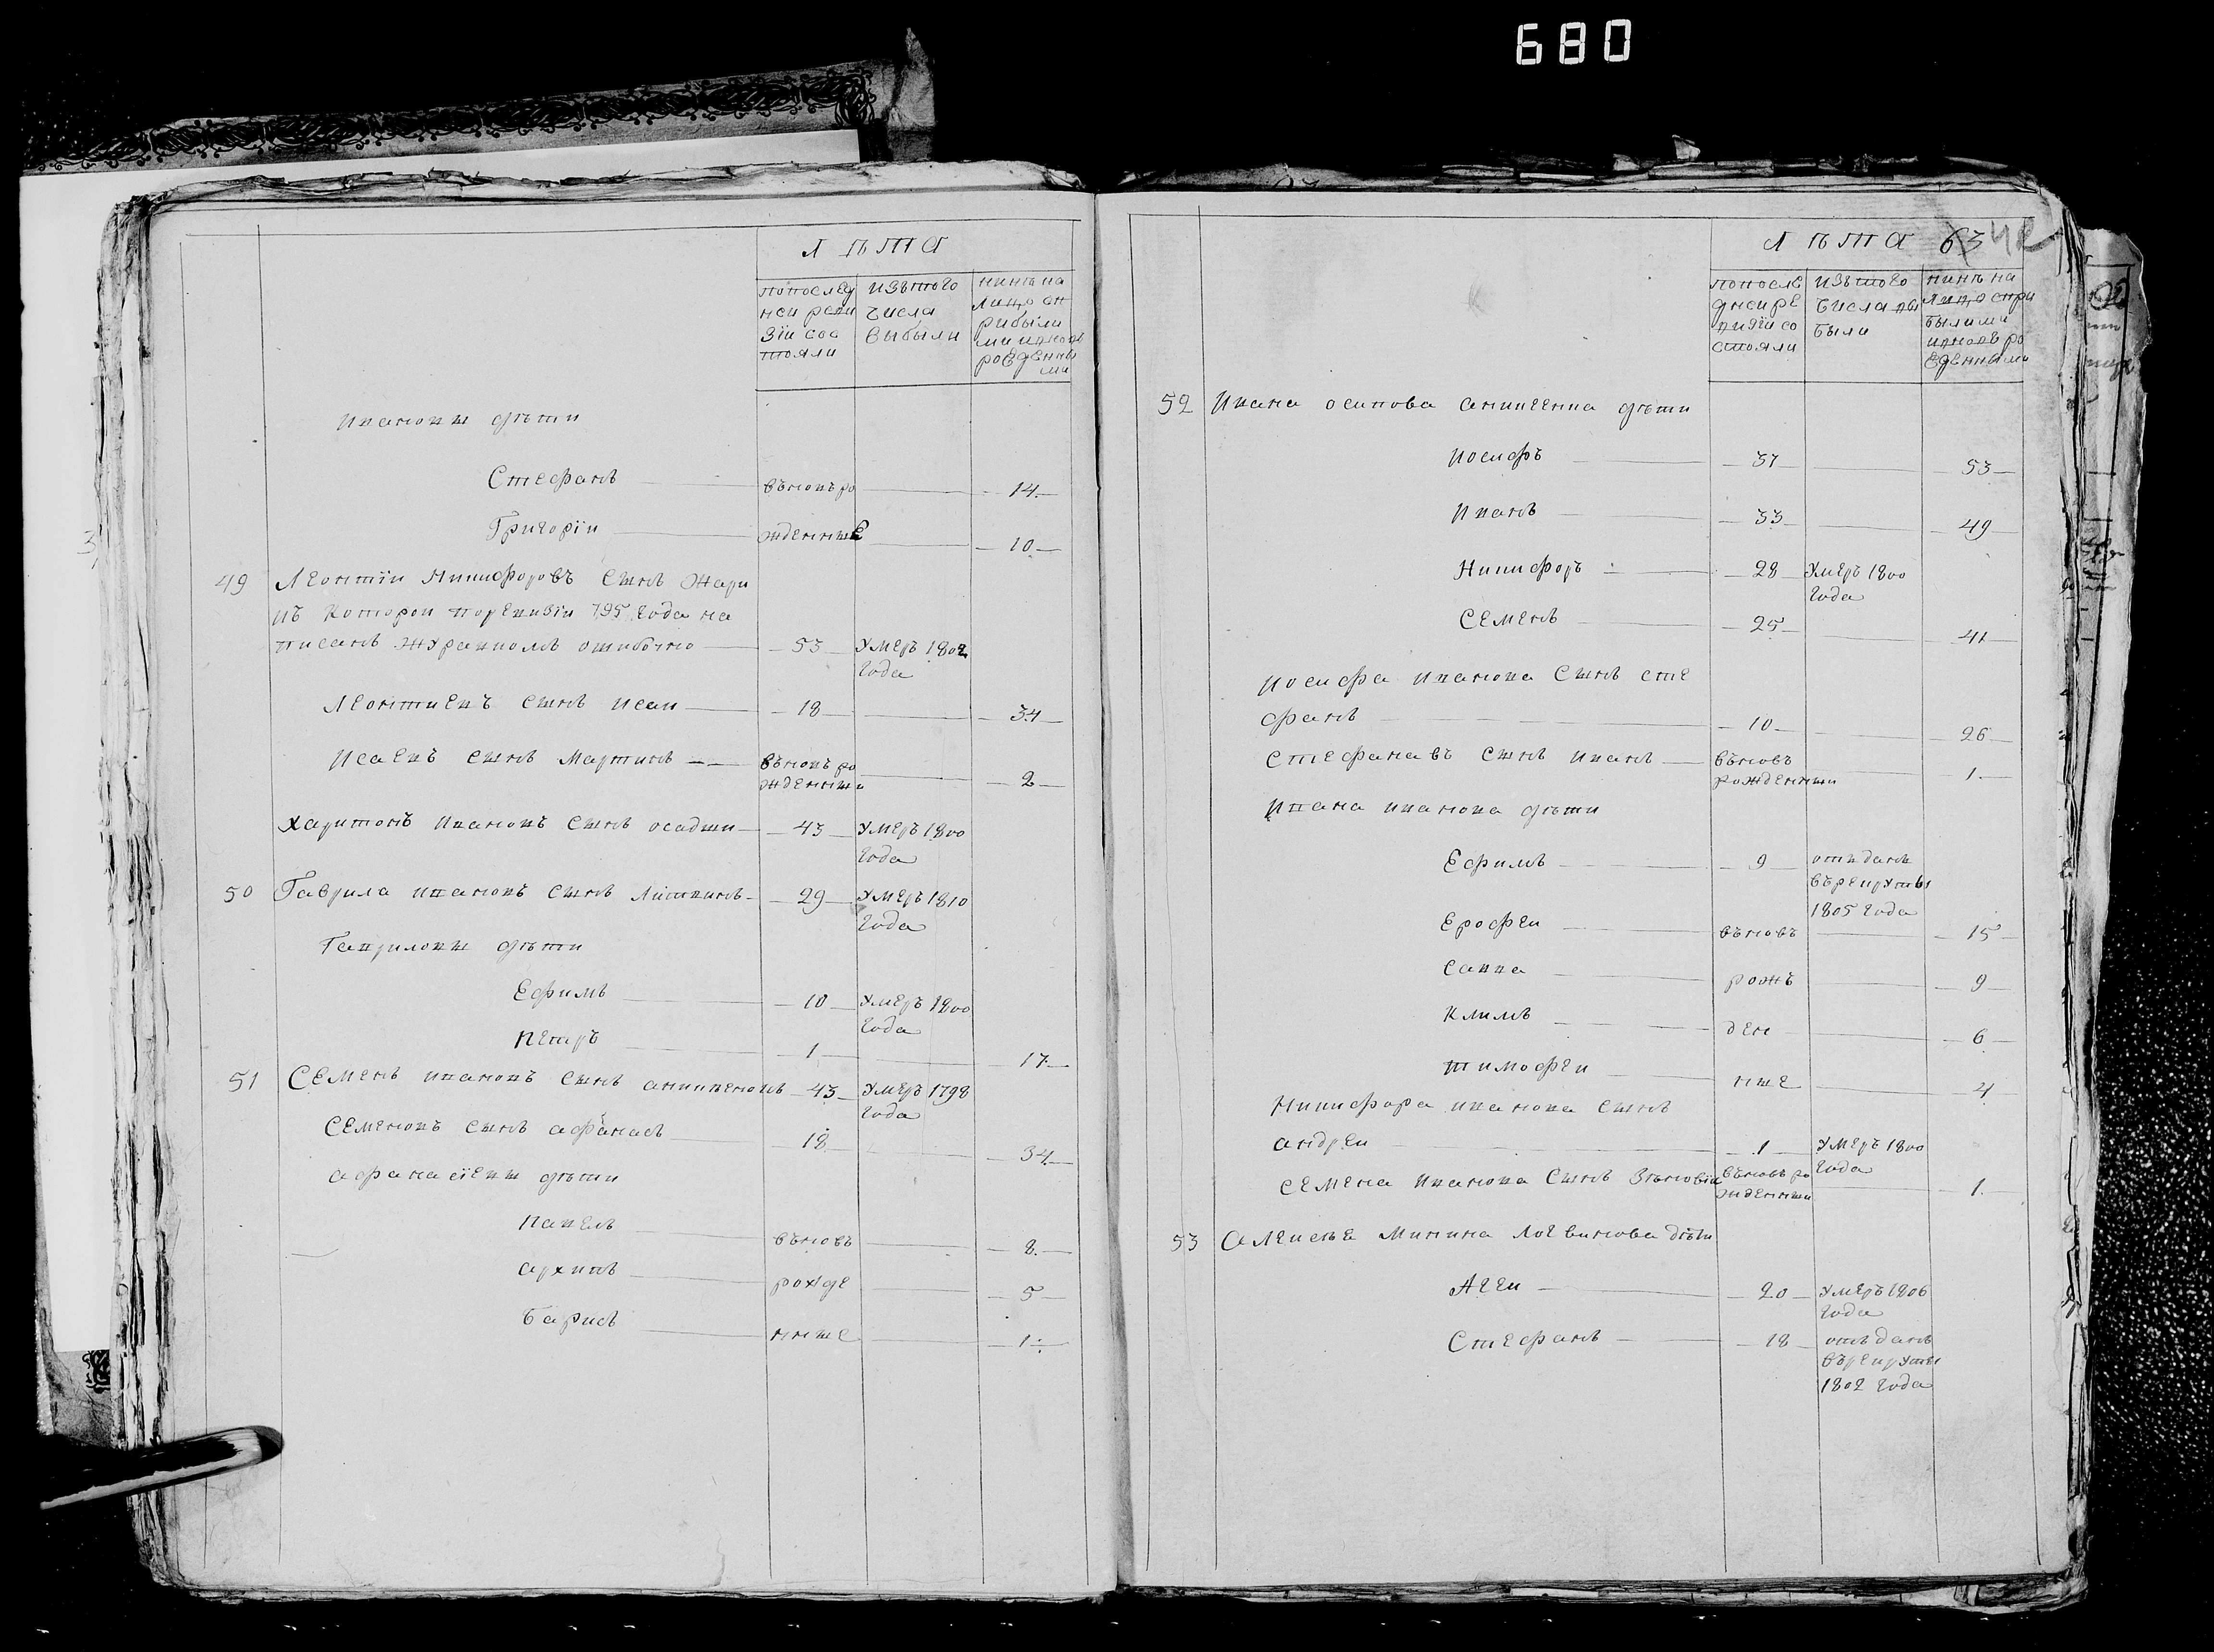 680
Лѣта
попослѣд
ней реви
зіи сос
тояли
изътого
числа
выбыли
нинѣ на
лицо сп
рибыли
ми ивновъ
рожденны
ми
Ивановы дѣти
Стефанъ въновъ ро 14
Григорїи жденные 10
49 Леонтїи Никифоровъ сынъ Жари
въ которои поревизіи 795 года на
писанъ Журавполъ ошибочно 53 умеръ 1802
года
Леонтиевъ сынъ Исаи 18 34
Исаевъ сынъ Мартинъ въновъ ро 2
жденныи
Харитонъ Ивановъ сынъ осадчи 43 умеръ 1800
года
50 Гаврила Ивановъ сынъ Литвинъ 29 умеръ 1810
года
Гавриловы дѣти
Ефимъ 10 умеръ 1800
года
Петръ 1 17
51 Семенъ Ивановъ сынъ аникиеновъ 43 умеръ 1798
года
Семеновъ сынъ афанась 18 34
афанасїевы дѣти
Павелъ въновъ 8
архипъ рожде 5
Барисъ нные 1
Лѣта 63 42
попослѣ
днеи ре
визїи со
стояли
изътого
числа вы
были
нинѣ на
лицо спри
былими
ивновъ ро
жденными
52 Ивана осипова аникеенка дѣти
Иосифъ 37 53
Иванъ 33 49
Никифоръ 28 умеръ 1800
года
Семенъ 25 41
Иосифа Иванова сынъ сте
фанъ 10 26
Стефанавъ сынъ Иванъ въновъ 1
рожденныи
Ивана Иванова дѣти
Ефимъ 9 отъданъ
върекруты
1805 года
Ерофеи въновъ 15
Савка рожъ 9
Климъ ден 6
Тимофеи ные 4
Никифора Иванова сынъ
андреи 1 умеръ 1800
года
Семена Иванова сынъ Зѣновіи въновъ ро 1
жденныи
53 Алексѣя Минина Логвинова дѣти
Агеи 20 умеръ 1806
года
Стефанъ 18 отъданъ
върекруты
1802 года